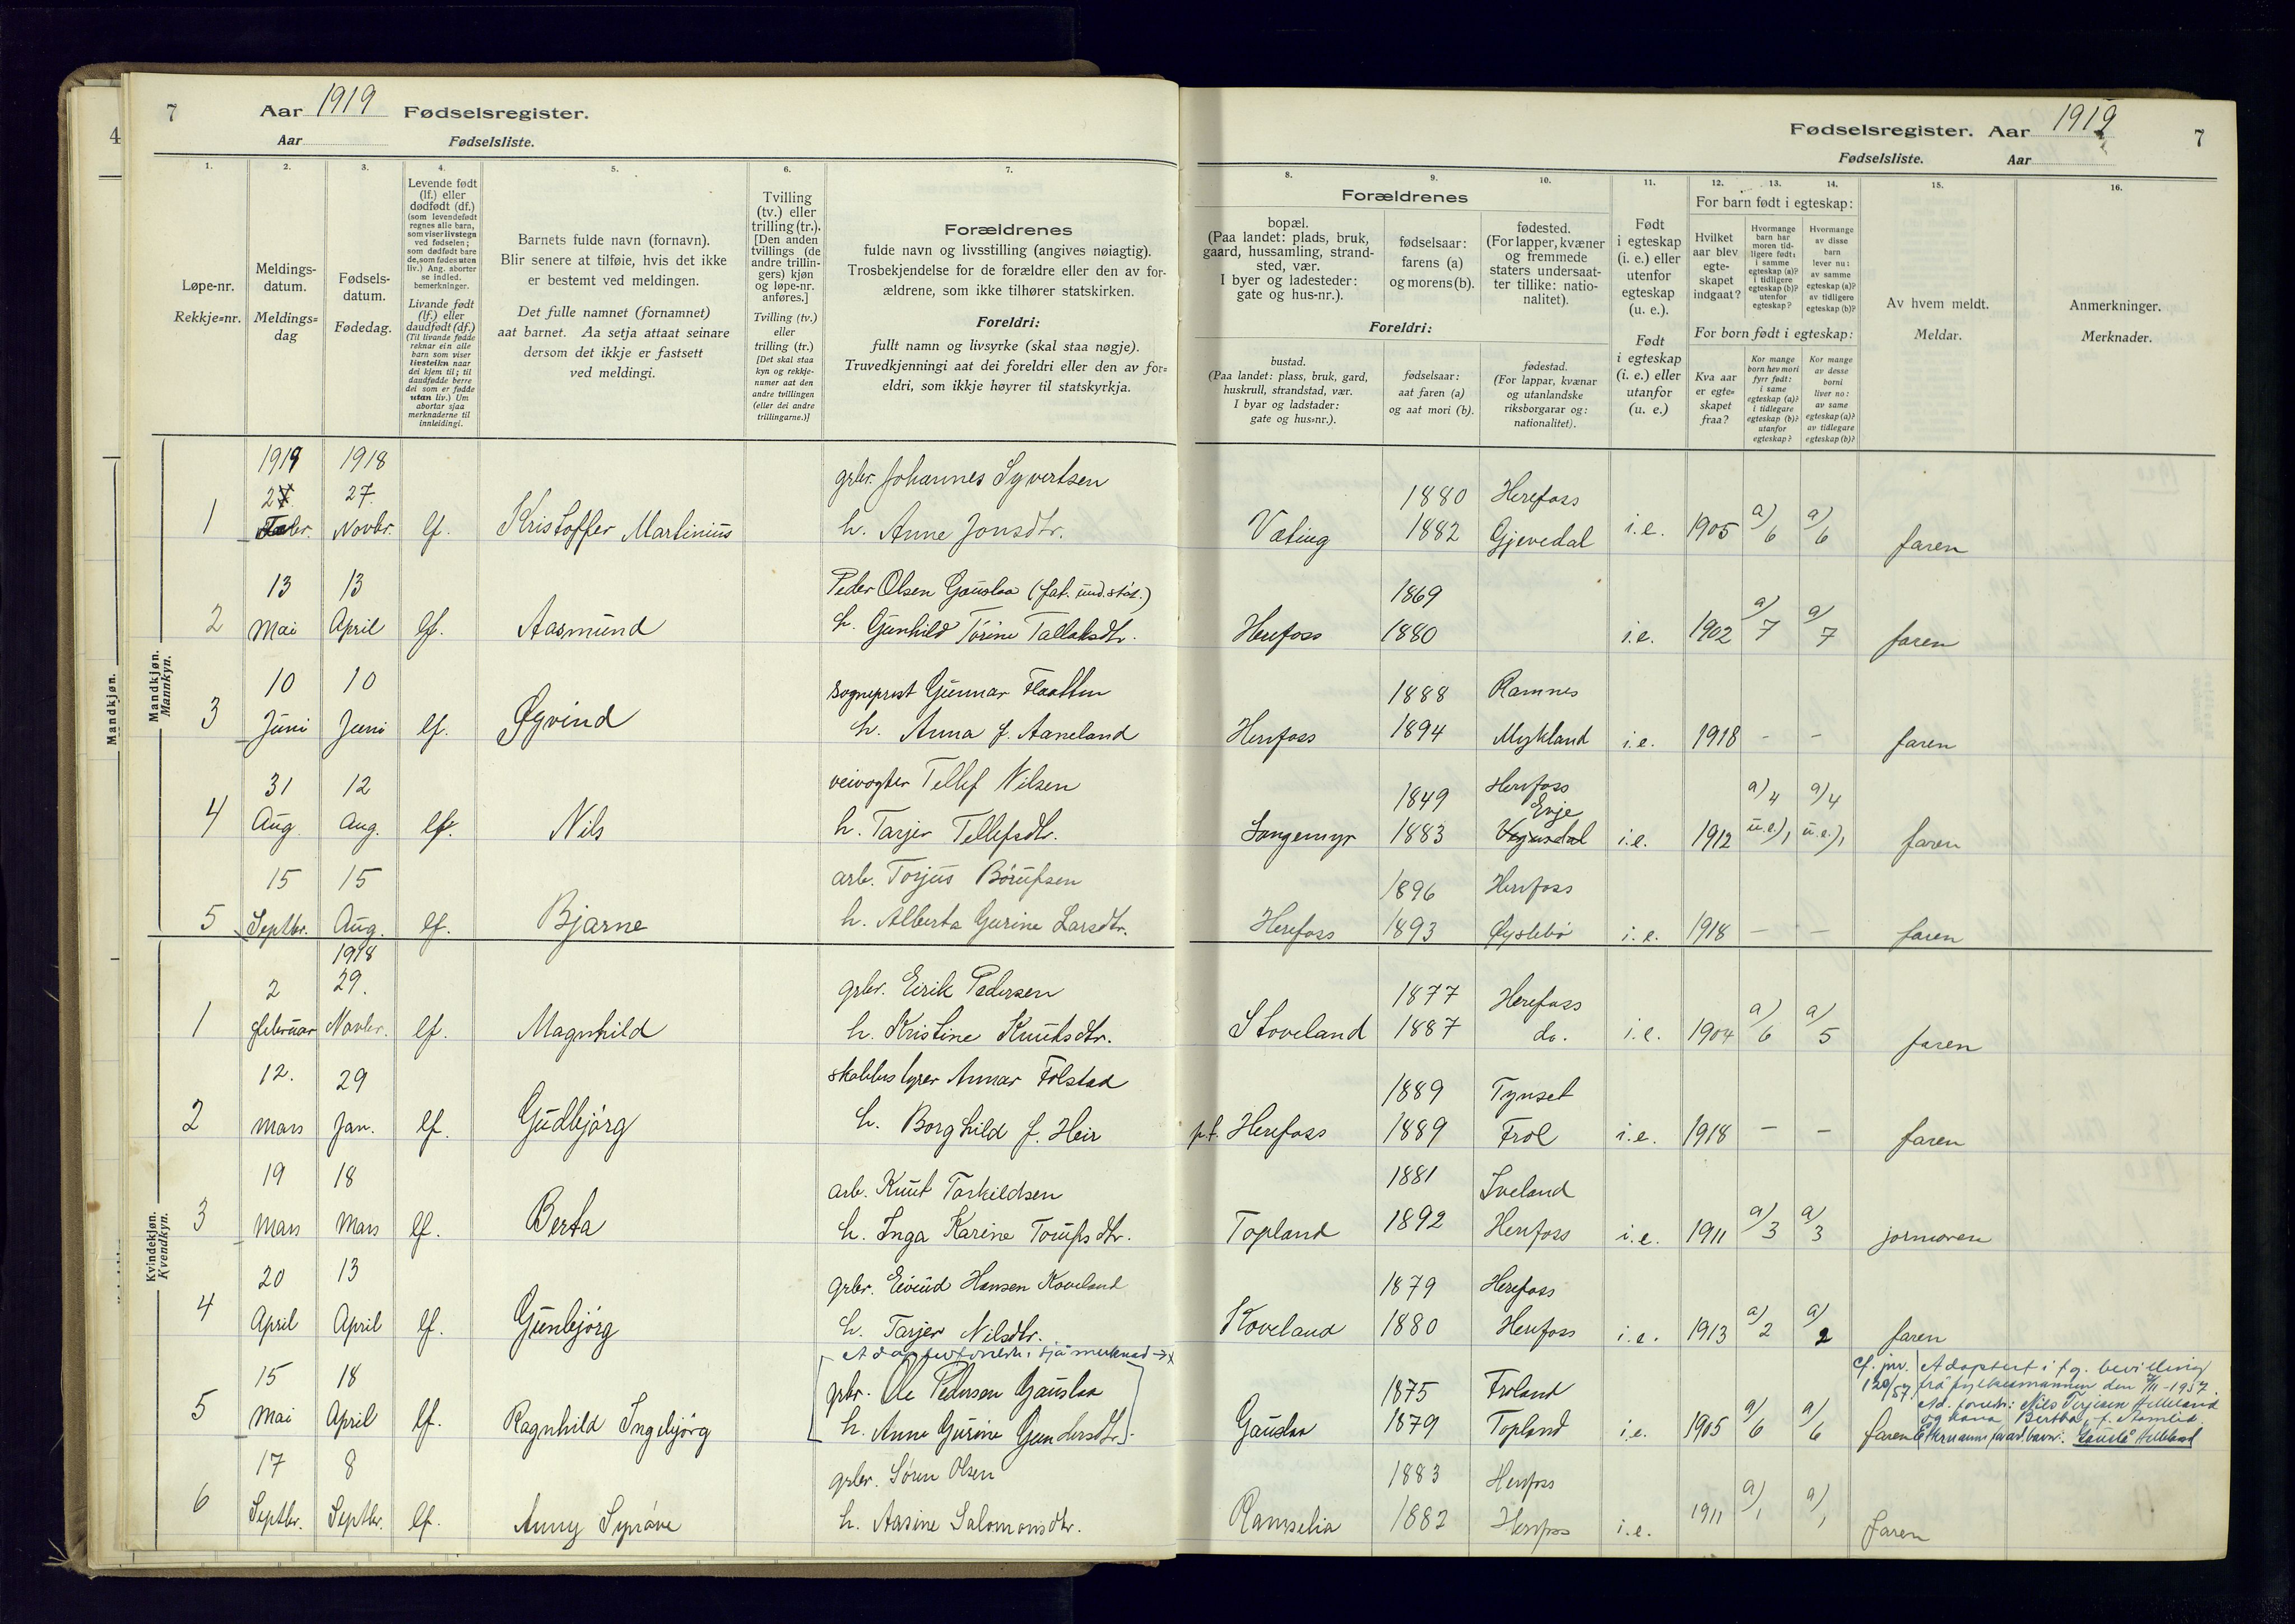 7 Aar 1919 Fødselsregister.
Aar Fødselsliste.
Fødselsregister. Aar 1919 7
Fødselsliste. Aar
4
1. 2. 3. 4. 5. 6. 7.
8. 9. 10. 11. 12. 13. 14. 15. 16.
Løpe-nr.
Rekkje=nr.
Meldings-
datum.
Meldings=
dag
Fødsels-
datum.
Fødedag.
Levende født
(lf.) eller
dødfødt (df.)
(som levendefødt
regnes alle barn,
som viser livstegn
ved fødselen;
som dødfødt bare
de, som fødes uten
liv.) Ang. aborter
se indled.
bemerkninger.
Livande født
(lf.) eller
daudfødt (df.)
(Til livande fødde
reknar ein alle
barn som viser
livsteikn naar
dei kjem til; til
daudfødde berre
dei som er fødde
utan liv.) Um
abortar sjaa
merknaderne til
innleidingi.
Barnets fulde navn (fornavn).
Blir senere at tilføie, hvis det ikke
er bestemt ved meldingen.
Det fulle namnet (fornamnet)
aat barnet. Aa setja attaat seinare
dersom det ikkje er fastsett
ved meldingi.
Tvilling
(tv.) eller
trilling (tr.).
[Den anden
tvillings (de
andre trillin-
gers) kjøn
og løpe-nr.
anføres.]
Tvilling (tv.)
eller
trilling (tr.)
[Det skal staa
kyn og rekkje-
numer aat den
andre tvillingen
(eller dei andre
trillingarne.)]
Forældrenes
fulde navn og livsstilling (angives nøiagtig).
Trosbekjendelse for de forældre eller den av for-
ældrene, som ikke tilhører statskirken.
Foreldri:
fullt namn og livsyrke (skal staa nøgje).
Truvedkjenningi aat dei foreldri eller den av for=
eldri, som ikkje høyrer til statskyrkja.
Forældrenes
bopæl.
(Paa landet: plads, bruk,
gaard, hussamling, strand-
sted, vær.
I byer og ladesteder:
gate og hus-nr.).
fødselsaar:
farens (a)
og morens (b).
fødested.
(For lapper, kvæner
og fremmede
staters undersaat-
ter tillike: natio-
nalitet).
Foreldri:
bustad.
(Paa landet: plass, bruk, gard,
huskrull, strandstad, vær.
I byar og ladstader:
gate og hus=nr.).
fødselsaar:
aat faren (a)
og aat mori (b).
fødestad.
(For lappar, kvænar
og utanlandske
riksborgarar og:
nationalitet).
Født
i egteskap
(i. e.) eller
utenfor
egteskap
(u. e.).
Født
i egteskap
(i. e.) eller
utanfor
(u. e.)
For barn født i egteskap:
Hvilket
aar blev
egte-
skapet
indgaat?
Hvormange
barn har
moren tid-
ligere født:
i samme
egteskap (a)?
i tidligere
egteskap (b)?
utenfor
egteskap?
Hvormange
av disse
barn
lever nu:
av samme
egteskap (a)?
av tidligere
egteskap (b)?
For born født i egteskap:
Kva aar
er egte=
skapet
fraa?
Kor mange
born hev mori
fyrr født:
i same
egteskap (a)?
i tidlegare
egteskap (b)?
utanfor
egteskap?
Kor mange
av desse
borni
liver no:
av same
egteskap (a)?
av tidlegare
egteskap (b)?
Av hvem meldt.
Meldar.
Anmerkninger.
Merknader.
Mandkjøn.
Mandkjøn.
Mannkyn.
1919 1918 grbr. Johannes Syvertsen 1880 Herefoss
1 27. Novbr. lf. Kristoffer Martinius h. Anne Jonsdtr. Væting 1882 Gjevedal i.e. 1905 a) 6 a) 6 faren
13 13 Peder Olsen Gauslaa (fat. und.støt.) 1869
2 Mai April lf. Aasmund h. Gunhild Torine Tallaksdtr. Herefoss 1880 i.e. 1902 a) 7 a) 7 faren
10 10 sogneprest Gunnar Flaatten 1888 Ramnes
3 Juni Juni lf. Øyvind h. Anna f. Aaneland Herefoss 1894 Mykland i.e. 1918 - - faren
31 12 veivogter Tellef Nilsen 1849 Herefoss
Evje
4 Aug. Aug. lf. Nils h. Tarjer Tellefsdtr. Langemyr 1883 Vegusdal i.e. 1912 a) 4 u.e.) 1 a) 4 u.e.) 1 faren
15 15 arb. Torjus Børufsen 1896 Herefoss
5 Septbr. Aug. lf. Bjarne h. Alberta Gurine Larsdtr. Herefoss 1893 Øyslebø i.e. 1918 - - faren
Kvindekjøn.
Kvendkyn.
1918
2 29. grbr. Eirik Pedersen 1877 Herefoss
1 Februar Novbr. lf. Magnhild h. Kristine Knutsdtr. Stoveland 1887 do. i.e. 1904 a) 6 a) 5 faren
12. 29 skolebestyrer Annar Folstad 1889 Tynset
2 Mars Jan. lf. Gudbjørg h. Borghild f. Heir p.t. Herefoss 1889 Frol i.e. 1918 - - faren
19 18 arb. Knut Torkildsen 1881 Iveland
3 Mars Mars lf. Berta h. Inga Karine Toufsdtr. Topland 1892 Herefoss i.e. 1911 a) 3 a) 3 jormoren
20 13 grbr. Eivind Hansen Koveland 1879 Herefoss
4 April April lf. Gunbjørg h. Tarjer Nilsdtr. Koveland 1880 Herefoss i.e. 1913 a) 2 a) 2 faren
Adoptivforeldr. sjå merknad → x
15 18 grbr. Ole Pedersen Gauslaa 1875 Froland
5 Mai April lf. Ragnhild Ingebjørg h. Anne Gurine Gundersdtr. Gauslaa 1879 Topland i.e. 1905 a) 6 a) 6 faren
cf. jnr. 120/57
Adoptert i flg. bevilling
frå fylkesmannen den /11-1957.
Ad. foreldr: Nils Terjesen Helleland
og kona Bertha, f.
Etternamn for ad.barn: Gauslå Helleland
17 8 grbr. Søren Olsen 1883 Herefoss
6 Septbr. Septbr. lf. Anny Synøve h. Aasine Salomonsdtr. Ramselia 1882 Herefoss i.e. 1911 a) 1 a) 1 faren